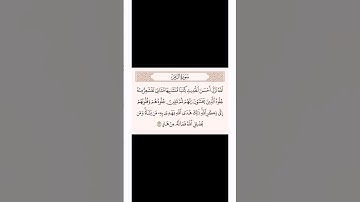 سورة الزمر
الله نزل أحسن الحديث كتبا متشبها مثاني تقشعر منه
جلود الذين يخشون ربهم ثم تلين جلودهم وقلوبهم
إلى ذكر الله ذلك هدى الله يهدي به من يشاء ومن
يضلل الله فما له من هاد